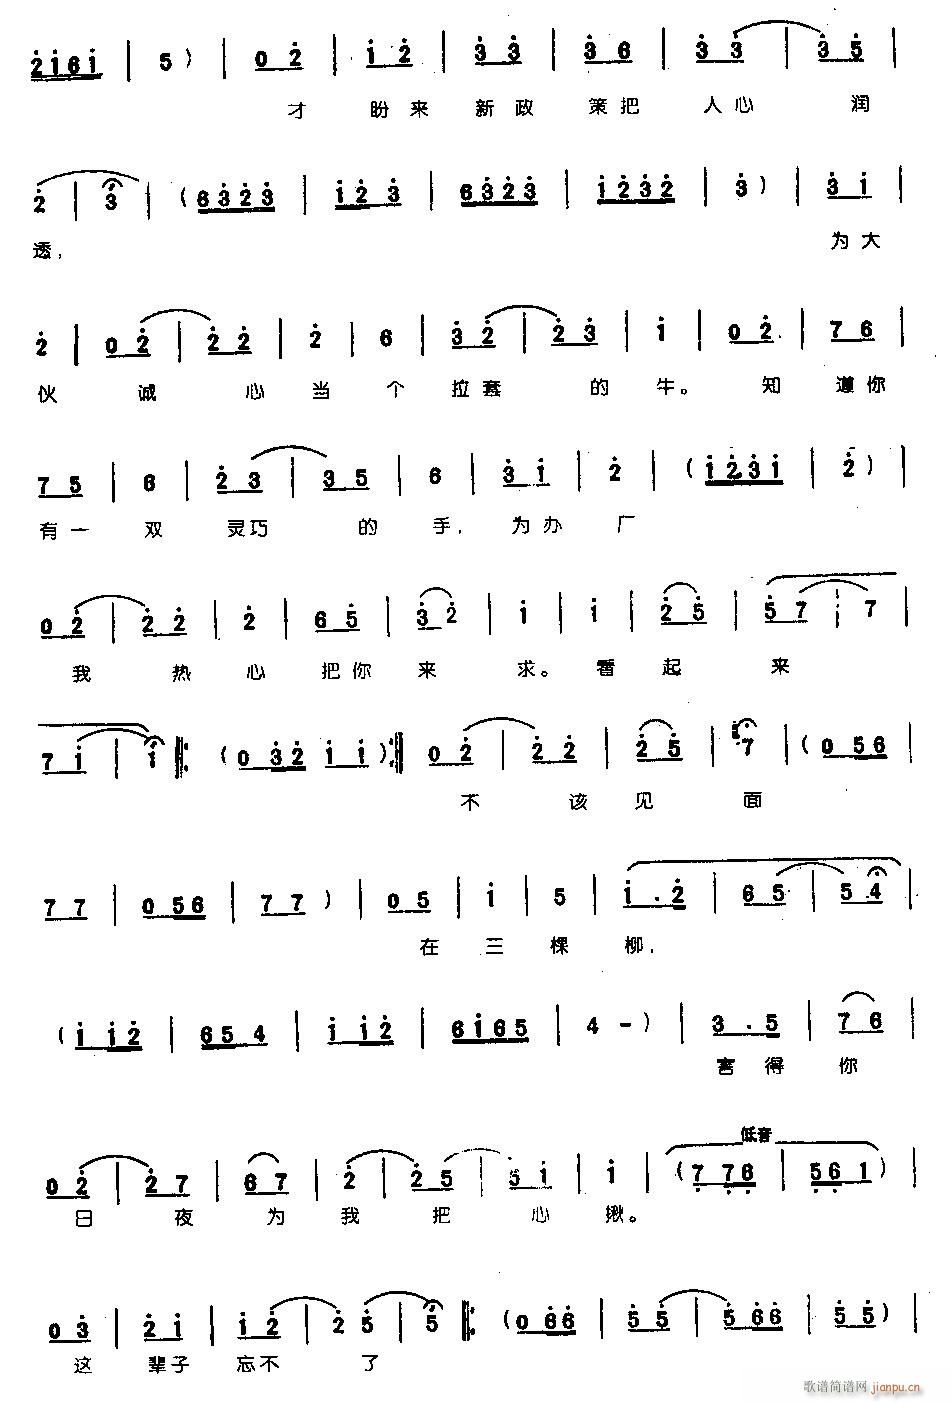 2 1 6 1 | 5 ) | 0 2 | 1 2 | 3 3 | 3 6 | 3 3 | 3 5 |
才 盼 来 新 政 策 把 人 心 润
2 | 3 | ( 6 3 2 3 | 1 2 3 | 6 3 2 3 | 1 2 3 2 | 3 ) | 3 1 |
透, 为 大
2 | 0 2 | 2 2 | 2 | 6 | 3 2 | 2 3 | 1 | 0 2 | 7 6 |
伙 诚 心 当 个 拉 套 的 牛。 知 道 你
7 5 | 6 | 2 3 | 3 5 | 6 | 3 1 | 2 | ( 1 2 3 1 | 2 ) |
有 一 双 灵 巧 的 手, 为 办 厂
0 2 | 2 2 | 2 | 6 5 | 3 2 | 1 | 1 | 2 5 | 5 7 | 7 |
我 热 心 把 你 来 求。 看 起 来
7 1 | 1 :| ( 0 3 2 1 1 ) :| 0 2 | 2 2 | 2 5 | 7 | ( 0 5 6 |
不 该 见 面
7 7 | 0 5 6 | 7 7 ) | 0 5 | 1 | 5 | 1 . 2 | 6 5 | 5 4 |
在 三 棵 柳,
( 1 1 2 | 6 5 4 | 1 1 2 | 6 1 6 5 | 4 - ) | 3 . 5 | 7 6 |
害 得 你
低音
0 2 | 2 7 | 6 7 | 2 | 2 5 | 5 1 | 1 | ( 7 7 6 | 5 6 1 ) |
日 夜 为 我 把 心 揪。
0 3 | 2 1 | 1 2 | 2 5 | 5 :| ( 0 6 6 | 5 5 | 5 6 6 | 5 5 ) |
这 辈 子 忘 不 了
歌谱简谱网 jianpu.cn